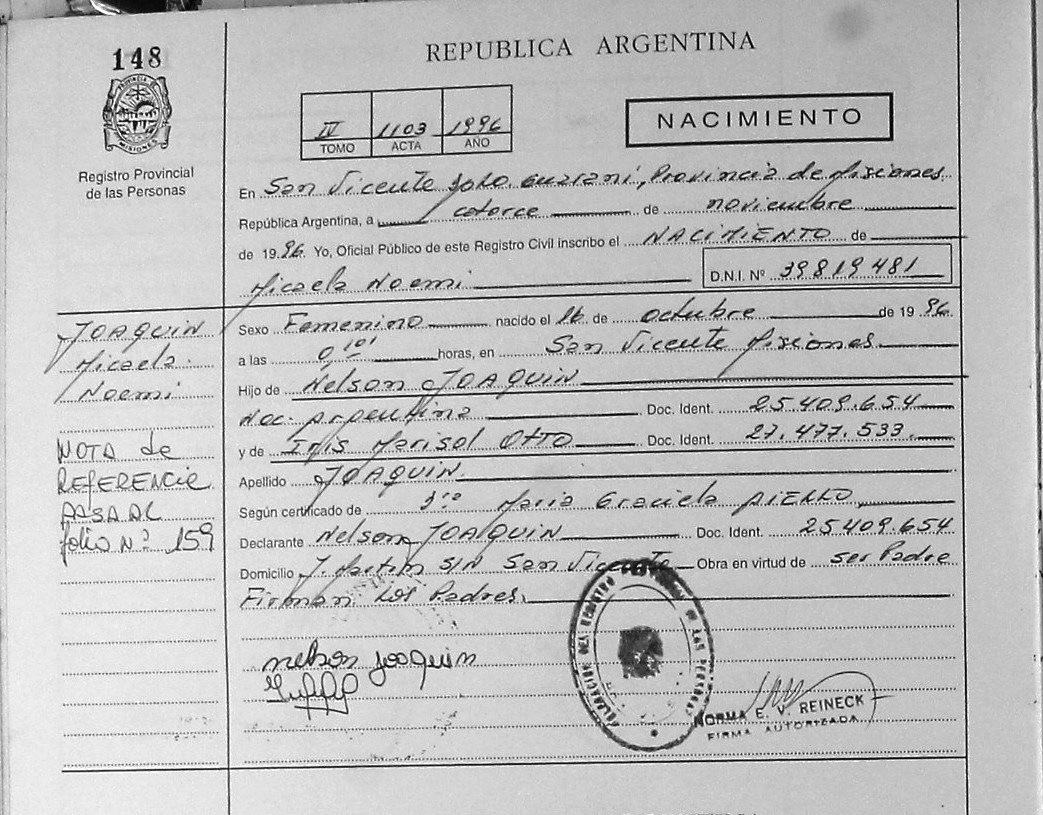 148
PROVINCIA DE
MISIONES
Registro Provincial
de las Personas
REPUBLICA ARGENTINA
IV 1103 1996
TOMO ACTA AÑO
NACIMIENTO
En San Vicente Dpto. Guarani, Provincia de Misiones
República Argentina, a catorce de noviembre
de 1996. Yo, Oficial Público de este Registro Civil inscribo el NACIMIENTO de
Micaela Noemi D.N.I. Nº 39819481
Sexo Femenino nacido el 16 de octubre de 1996.
a las 0,10' horas, en San Vicente Misiones
Hijo de Nelson JOAQUIN
Nac. Argentina Doc. Ident. 25.409.654
y de Inis Marisol Otto Doc. Ident. 27.477.533.
Apellido JOAQUIN.
Según certificado de Maria Graciela
Declarante Nelson JOAQUIN Doc. Ident. 25409.654
Domicilio S/N San Vicente Obra en virtud de ser Padre
Firman Los Padres.
JOAQUIN
Micaela
Noemi
NOTA de
REFERENCIA
PASA AL
folio Nº 159
nelson joaquim
NORMA E. V. REINECK
FIRMA AUTORIZADA